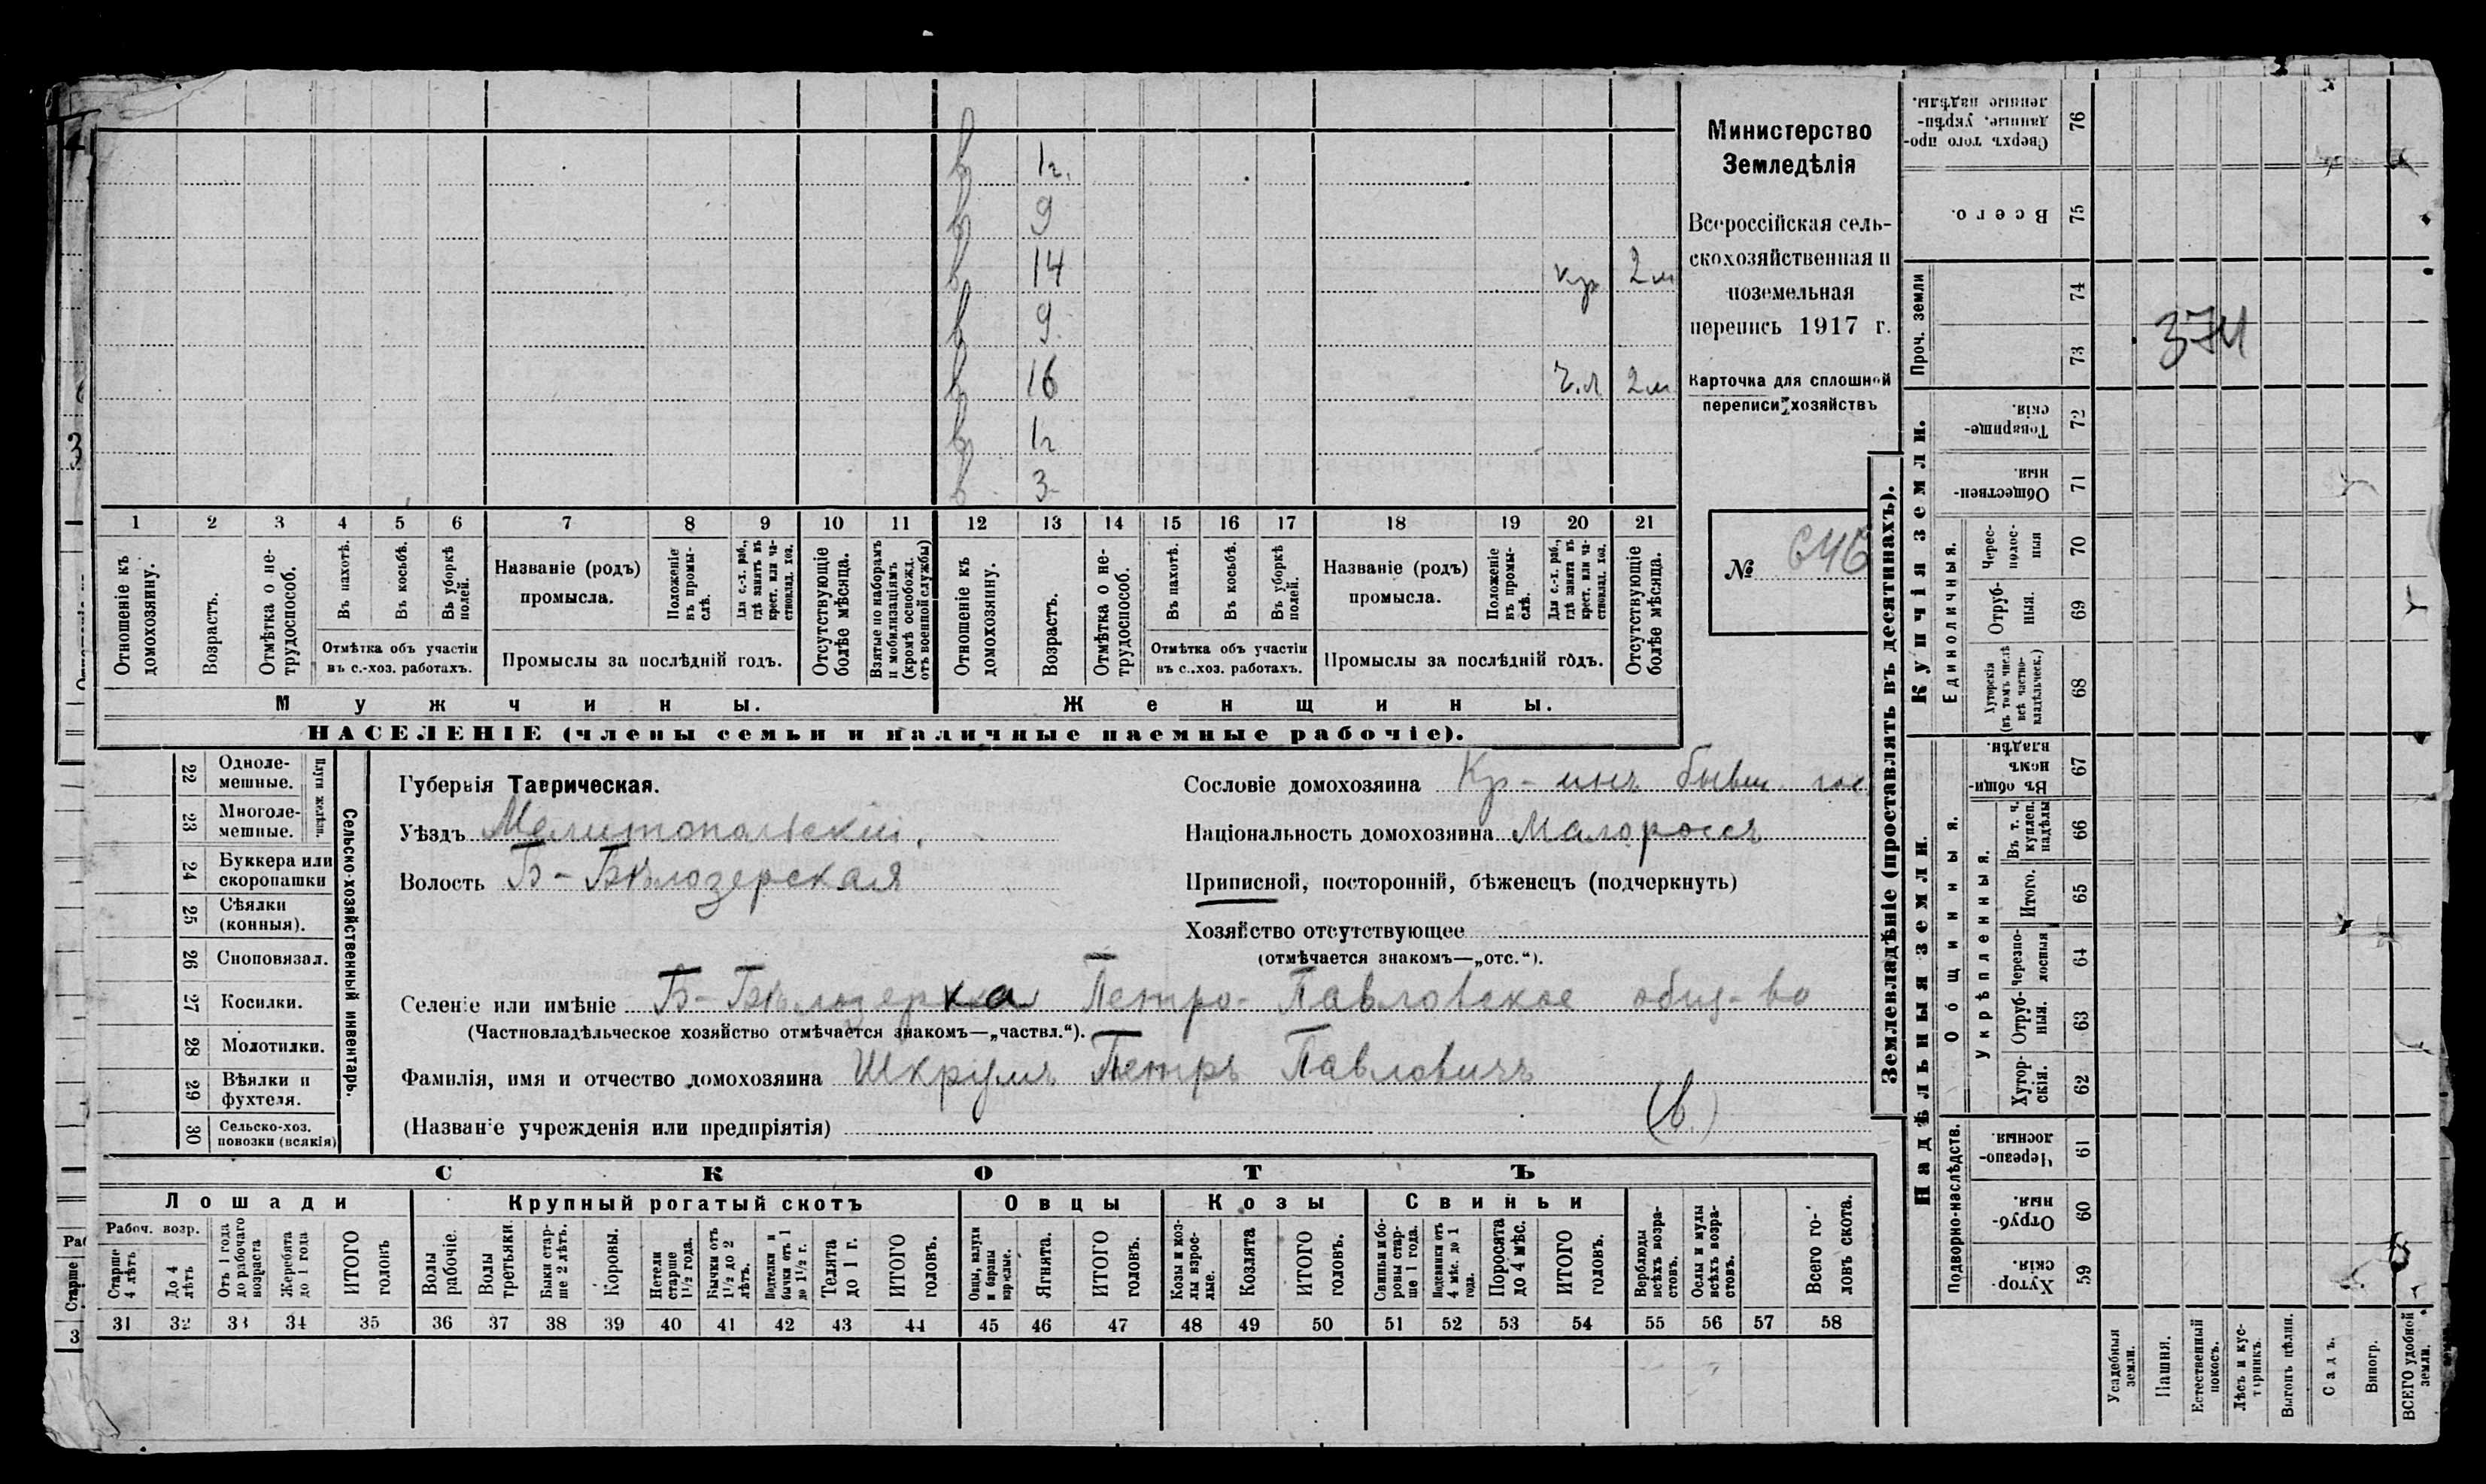 в 1г.
в 9
в 14 кр 2м
в 9.
в 16 ч.л 2м
в 1г
в 3
1 2 3 4 5 6 7 8 9 10 11 12 13 14 15 16 17 18 19 20 21
Отношеніе къ домохозяину.
Возрастъ.
Отмѣтка о нетрудоспособ.
Въ пахотѣ.
Въ косьбѣ.
Въ уборкѣ полей.
Отмѣтка объ участіи
въ с.-хоз. работахъ.
Названіе (родъ)
промысла.
Положеніе въ промыслѣ.
Для с.-х. раб., гдѣ занятъ въ крест. или частновлад. хоз.
Промыслы за послѣдній годъ.
Отсутствующіе болѣе мѣсяца.
Взятые по наборамъ и мобилизаціямъ (кромѣ освобожд. отъ военной службы)
Отношеніе къ домохозяину.
Возрастъ.
Отмѣтка о нетрудоспособ.
Въ пахотѣ.
Въ косьбѣ.
Въ уборкѣ полей.
Отмѣтка объ участіи
въ с..хоз. работахъ.
Названіе (родъ)
промысла.
Положеніе въ промыслѣ.
Для с.-х. раб., гдѣ занята въ крест. или частновлад. хоз.
Промыслы за послѣдній годъ.
Отсутствующіе болѣе мѣсяца.
Мужчины. Женщины.
НАСЕЛЕНІЕ (члены семьи и наличные наемные рабочіе).
Министерство
Земледѣлія
Всероссійская сель-
скохозяйственная и
поземельная
перепись 1917 г.
Карточка для сплошной
переписи хозяйствъ
№ 646
22 Одноле-
мешные.
23 Многоле-
мешные.
Плуги желѣзн.
24 Буккера или
скоропашки
25 Сѣялки
(конныя).
26 Сноповязал.
27 Косилки.
28 Молотилки.
29 Вѣялки и
фухтеля.
30 Сельско-хоз.
повозки (всякія)
Сельско-хозяйственный инвентарь.
Губернія Таврическая.
Уѣздъ Мелитопольскій.
Волость Б-Бѣлозерская
Сословіе домохозяина Кр-инъ бывш. гос
Національность домохозяина Малороссъ
Приписной, посторонній, бѣженецъ (подчеркнуть)
Хозяйство отсутствующее
(отмѣчается знакомъ—„отс.“).
Селеніе или имѣніе Б-Бѣлозерка Петро-Павловское общ-во
(Частновладѣльческое хозяйство отмѣчается знакомъ—„частвл.“).
Фамилія, имя и отчество домохозяина Шкрумъ Петръ Павловичъ
(Названіе учрежденія или предпріятія) (в.)
СКОТЪ
Лошади Крупный рогатый скотъ Овцы Козы Свиньи
Рабоч. возр.
Старше 4 лѣтъ
До 4 лѣтъ
Отъ 1 года до рабочаго возраста
Жеребята до 1 года
ИТОГО головъ
Волы рабочіе.
Волы третьяки.
Быки старше 2 лѣтъ.
Коровы.
Нетели старше 1½ года.
Бычки отъ 1½ до 2 лѣтъ.
Подтелки и бычки отъ 1 до 1½ г.
Телята до 1 г.
ИТОГО головъ.
Овцы, валухи и бараны взрослые.
Ягнята.
ИТОГО головъ.
Козы и козлы взрослые.
Козлята
ИТОГО головъ.
Свиньи и боровы старше 1 года.
Подсвинки отъ 4 мѣс. до 1 года.
Поросята до 4 мѣс.
ИТОГО головъ.
Верблюды всѣхъ возрастовъ.
Ослы и мулы всѣхъ возрастовъ.
Всего головъ скота.
31 32 33 34 35 36 37 38 39 40 41 42 43 44 45 46 47 48 49 50 51 52 53 54 55 56 57 58
Землевладѣніе (проставлять въ десятинахъ).
Надѣльныя земли. Купчія земли.
Проч. земли
Подворно-наслѣдств.
Общинныя.
Укрѣпленныя.
Единоличныя.
Сверхъ того проданные, укрѣпленные надѣлы. 76
Всего. 75
74
73
Товарищескія. 72
Общественныя 71
Чересполосныя 70
Отрубныя. 69
Хуторскія (въ томъ числѣ всѣ частновладѣльческ.) 68
Въ общинномъ владѣн. 67
Въ т. ч. куплен. надѣлы 66
Итого. 65
Черезполосныя 64
Отрубныя. 63
Хуторскія. 62
Черезполосныя. 61
Отрубныя. 60
Хуторскія. 59
374
Усадебныя земли.
Пашня.
Естественный покосъ.
Лѣсъ и кустарникъ.
Выгонъ цѣлин.
Садъ.
Виногр.
ВСЕГО удобной земли.